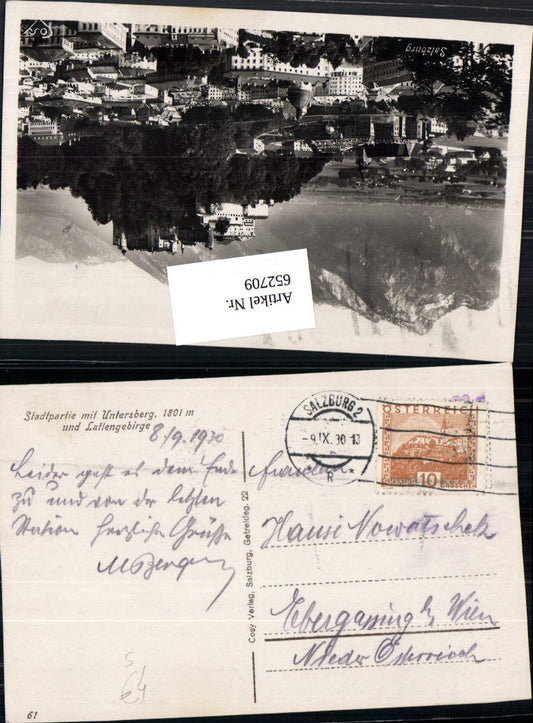 Cosy
Salzburg
Artikel Nr.
652709
Stadtpartie mit Untersberg, 1801 m
und Lattengebirge
8/9. 1930
Leider geht es dem Ende
zu und von der letzten
Station herzliche Grüße
M Berger
61
Cosy Verlag, Salzburg, Getreideg. 22
SALZBURG 2
-9.IX.30-10
* R *
ÖSTERREICH
10
GROSCHEN
Fräulein
Hansi Nowotschek
Ebergassing b/ Wien
Nieder Österreich